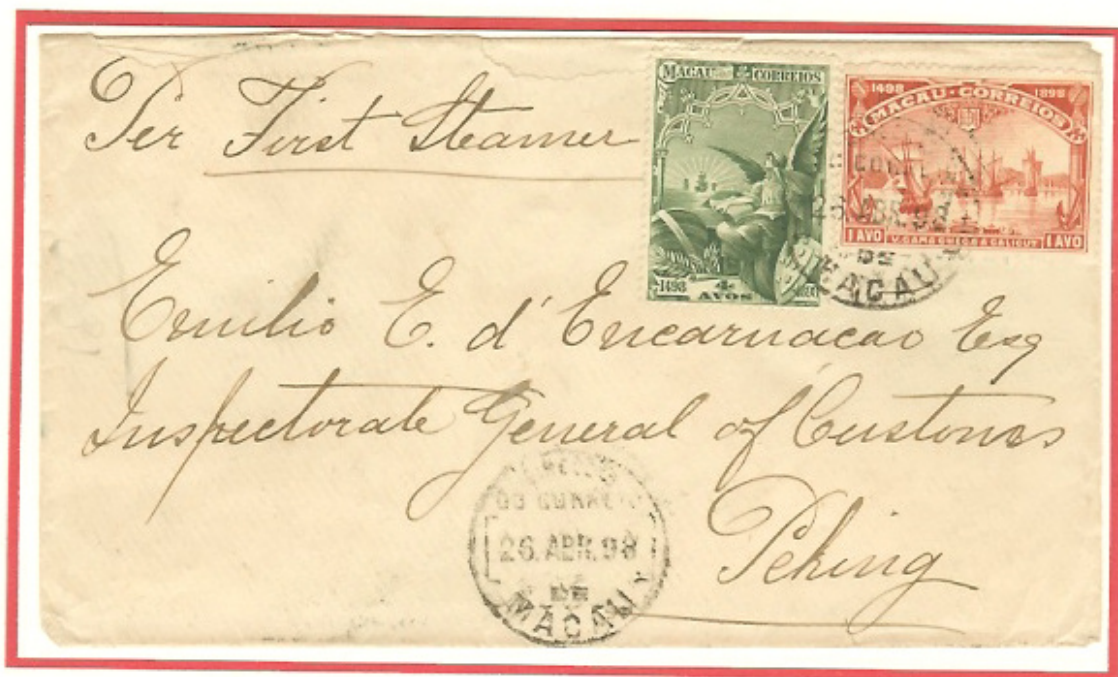 Per First Steamer
MACAU CORREIOS
1498 4 AVOS
1498 1898
MACAU · CORREIOS
1 AVO V. GAMA CHEGA A CALICUT 1 AVO
26. ABR. 98
DE
MACAU
Emilio E. d'Encarnacao Esq
Inspectorate General of Customs
Peking
DO CORREIO
26. ABR. 98
DE
MACAU